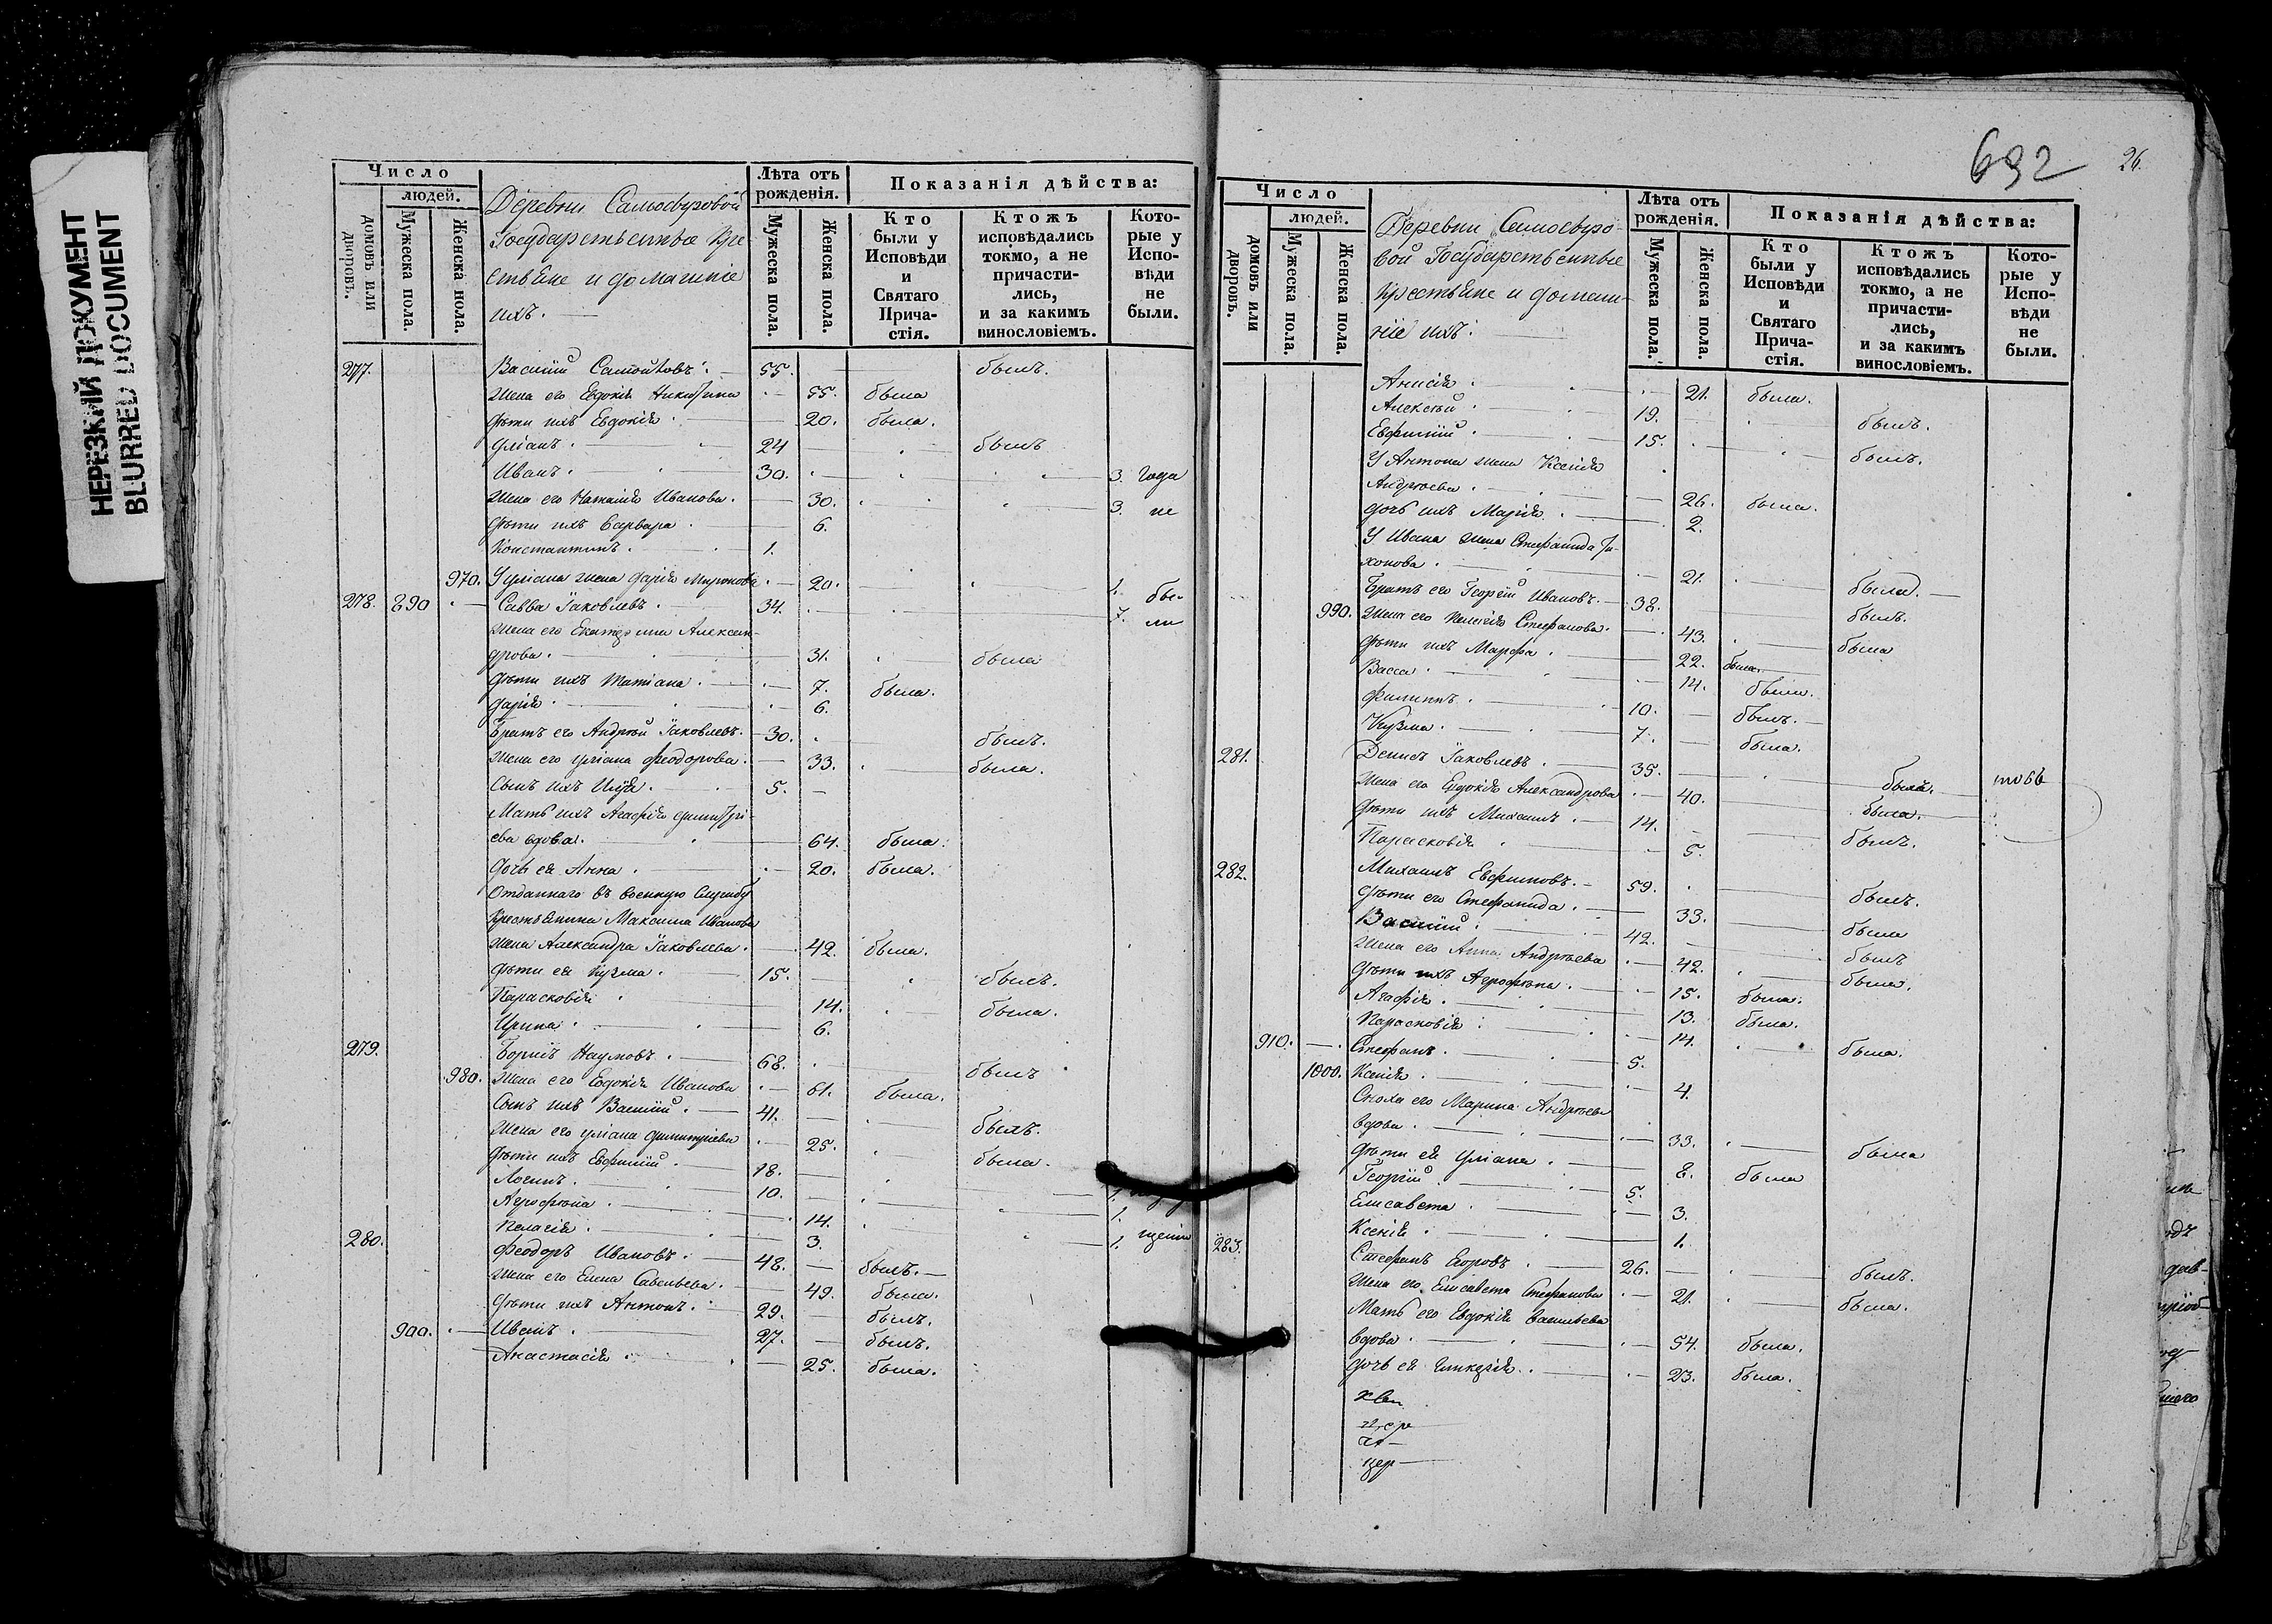 НЕРЕЗКИЙ ДОКУМЕНТ
BLURRED DOCUMENT
Число
людей.
домовъ или дворовъ.
Мужеска пола.
Женска пола.
Деревни Самосуровой
Государственные Кре-
стьяне и домашніе
ихъ.
Лѣта отъ рожденія.
Мужеска пола.
Женска пола.
Показанія дѣйства:
Кто были у Исповѣди и Святаго Прича-стія.
Ктожъ исповѣдались токмо, а не причасти-лись, и за какимъ винословіемъ.
Кото-рые у Испо-вѣди не были.
277. Василій Самойловъ. 55. былъ.
Жена его Евдокія Никитина 55. была
Дѣти ихъ Евдокія 20. была.
Уліанъ. 24 былъ
Иванъ. 30. 3. года
Жена его Наталія Иванова. 30. 3. не
Дѣти ихъ Варвара. 6.
Константинъ. 1.
970. У Уліана жена Дарія Миронова. 20. 1. бы-
278. 890 Савва Іаковлевъ. 34. 7. ли
Жена его Екатерина Алексан-
дрова. 31. была
Дѣти ихъ Татіана. 7. была.
Дарія. 6.
Братъ его Андрей Іаковлевъ. 30. былъ.
Жена его Уліана Феодорова. 33. была.
Сынъ ихъ Илія. 5.
Мать ихъ Агафія Димитрі-
ева вдова. 64. была.
Дочь ея Анна. 20. была.
Отданнаго въ военную службу
Крестьянина Максима Иванова
жена Александра Іаковлева. 42. была.
Дѣти ея Кузма. 15. былъ.
Парасковія 14. была.
Ирина. 6.
279. Борисъ Наумовъ. 68. былъ
980. Жена его Евдокія Иванова 61. была.
Сынъ ихъ Василій. 41. былъ.
Жена его Уліана Димитріева 25. была.
Дѣти ихъ Евфимій. 18. 1.
Логинъ. 10. 1.
Агрофѣна. 14. 1.
Пелагія. 3.
280. Феодоръ Ивановъ. 48. былъ.
Жена его Елена Савельева. 49. была.
Дѣти ихъ Антонъ. 29. былъ.
900. Иванъ. 27. былъ.
Анастасія. 25. была.
692
26.
Число
людей.
домовъ или дворовъ.
Мужеска пола.
Женска пола.
Деревни Самосуро-
вой Государственные
Крестьяне и домаш-
ніе ихъ.
Лѣта отъ рожденія.
Мужеска пола.
Женска пола.
Показанія дѣйства:
Кто были у Исповѣди и Святаго Прича-стія.
Ктожъ исповѣдались токмо, а не причасти-лись, и за какимъ винословіемъ.
Кото-рые у Испо-вѣди не были.
Анисія. 21. была.
Алексѣй. 19. былъ.
Евфимій. 15. былъ.
У Антона жена Ксенія
Андреева. 26. была.
Дочь ихъ Марія. 2.
У Ивана жена Стефанида Ти-
хонова. 21. была.
Братъ его Георгій Ивановъ. 38. былъ.
990. Жена его Пелагія Стефанова. 43. была
Дѣти ихъ Марфа. 22. была.
Васса. 14. была.
Филиппъ. 10. былъ.
Кузма. 7. была.
281. Денисъ Іаковлевъ. 35. былъ.
Жена его Евдокія Александрова 40. была.
Дѣти ихъ Михаилъ. 14. былъ.
Парасковія 5.
282. Михаилъ Евфимовъ. 59. былъ.
Дѣти его Стефанида. 33. была
Василій. 42. былъ
Жена его Анна Андреева 42. была.
Дѣти ихъ Агрофѣна. 15. была.
Агафія. 13. была.
Парасковія 14. была.
910. Стефанъ. 5.
1000. Ксенія. 4.
Сноха его Марина Андреева
вдова. 33. была
Дѣти ея Уліана. 8. была
Георгій 5.
Елисавета. 3.
Ксенія. 1.
283. Стефанъ Егоровъ. 26. былъ.
Жена его Елисавета Стефанова 21. была.
Мать его Евдокія Васильева
вдова. 54. была.
Дочь ея Гликерія. 23. была.